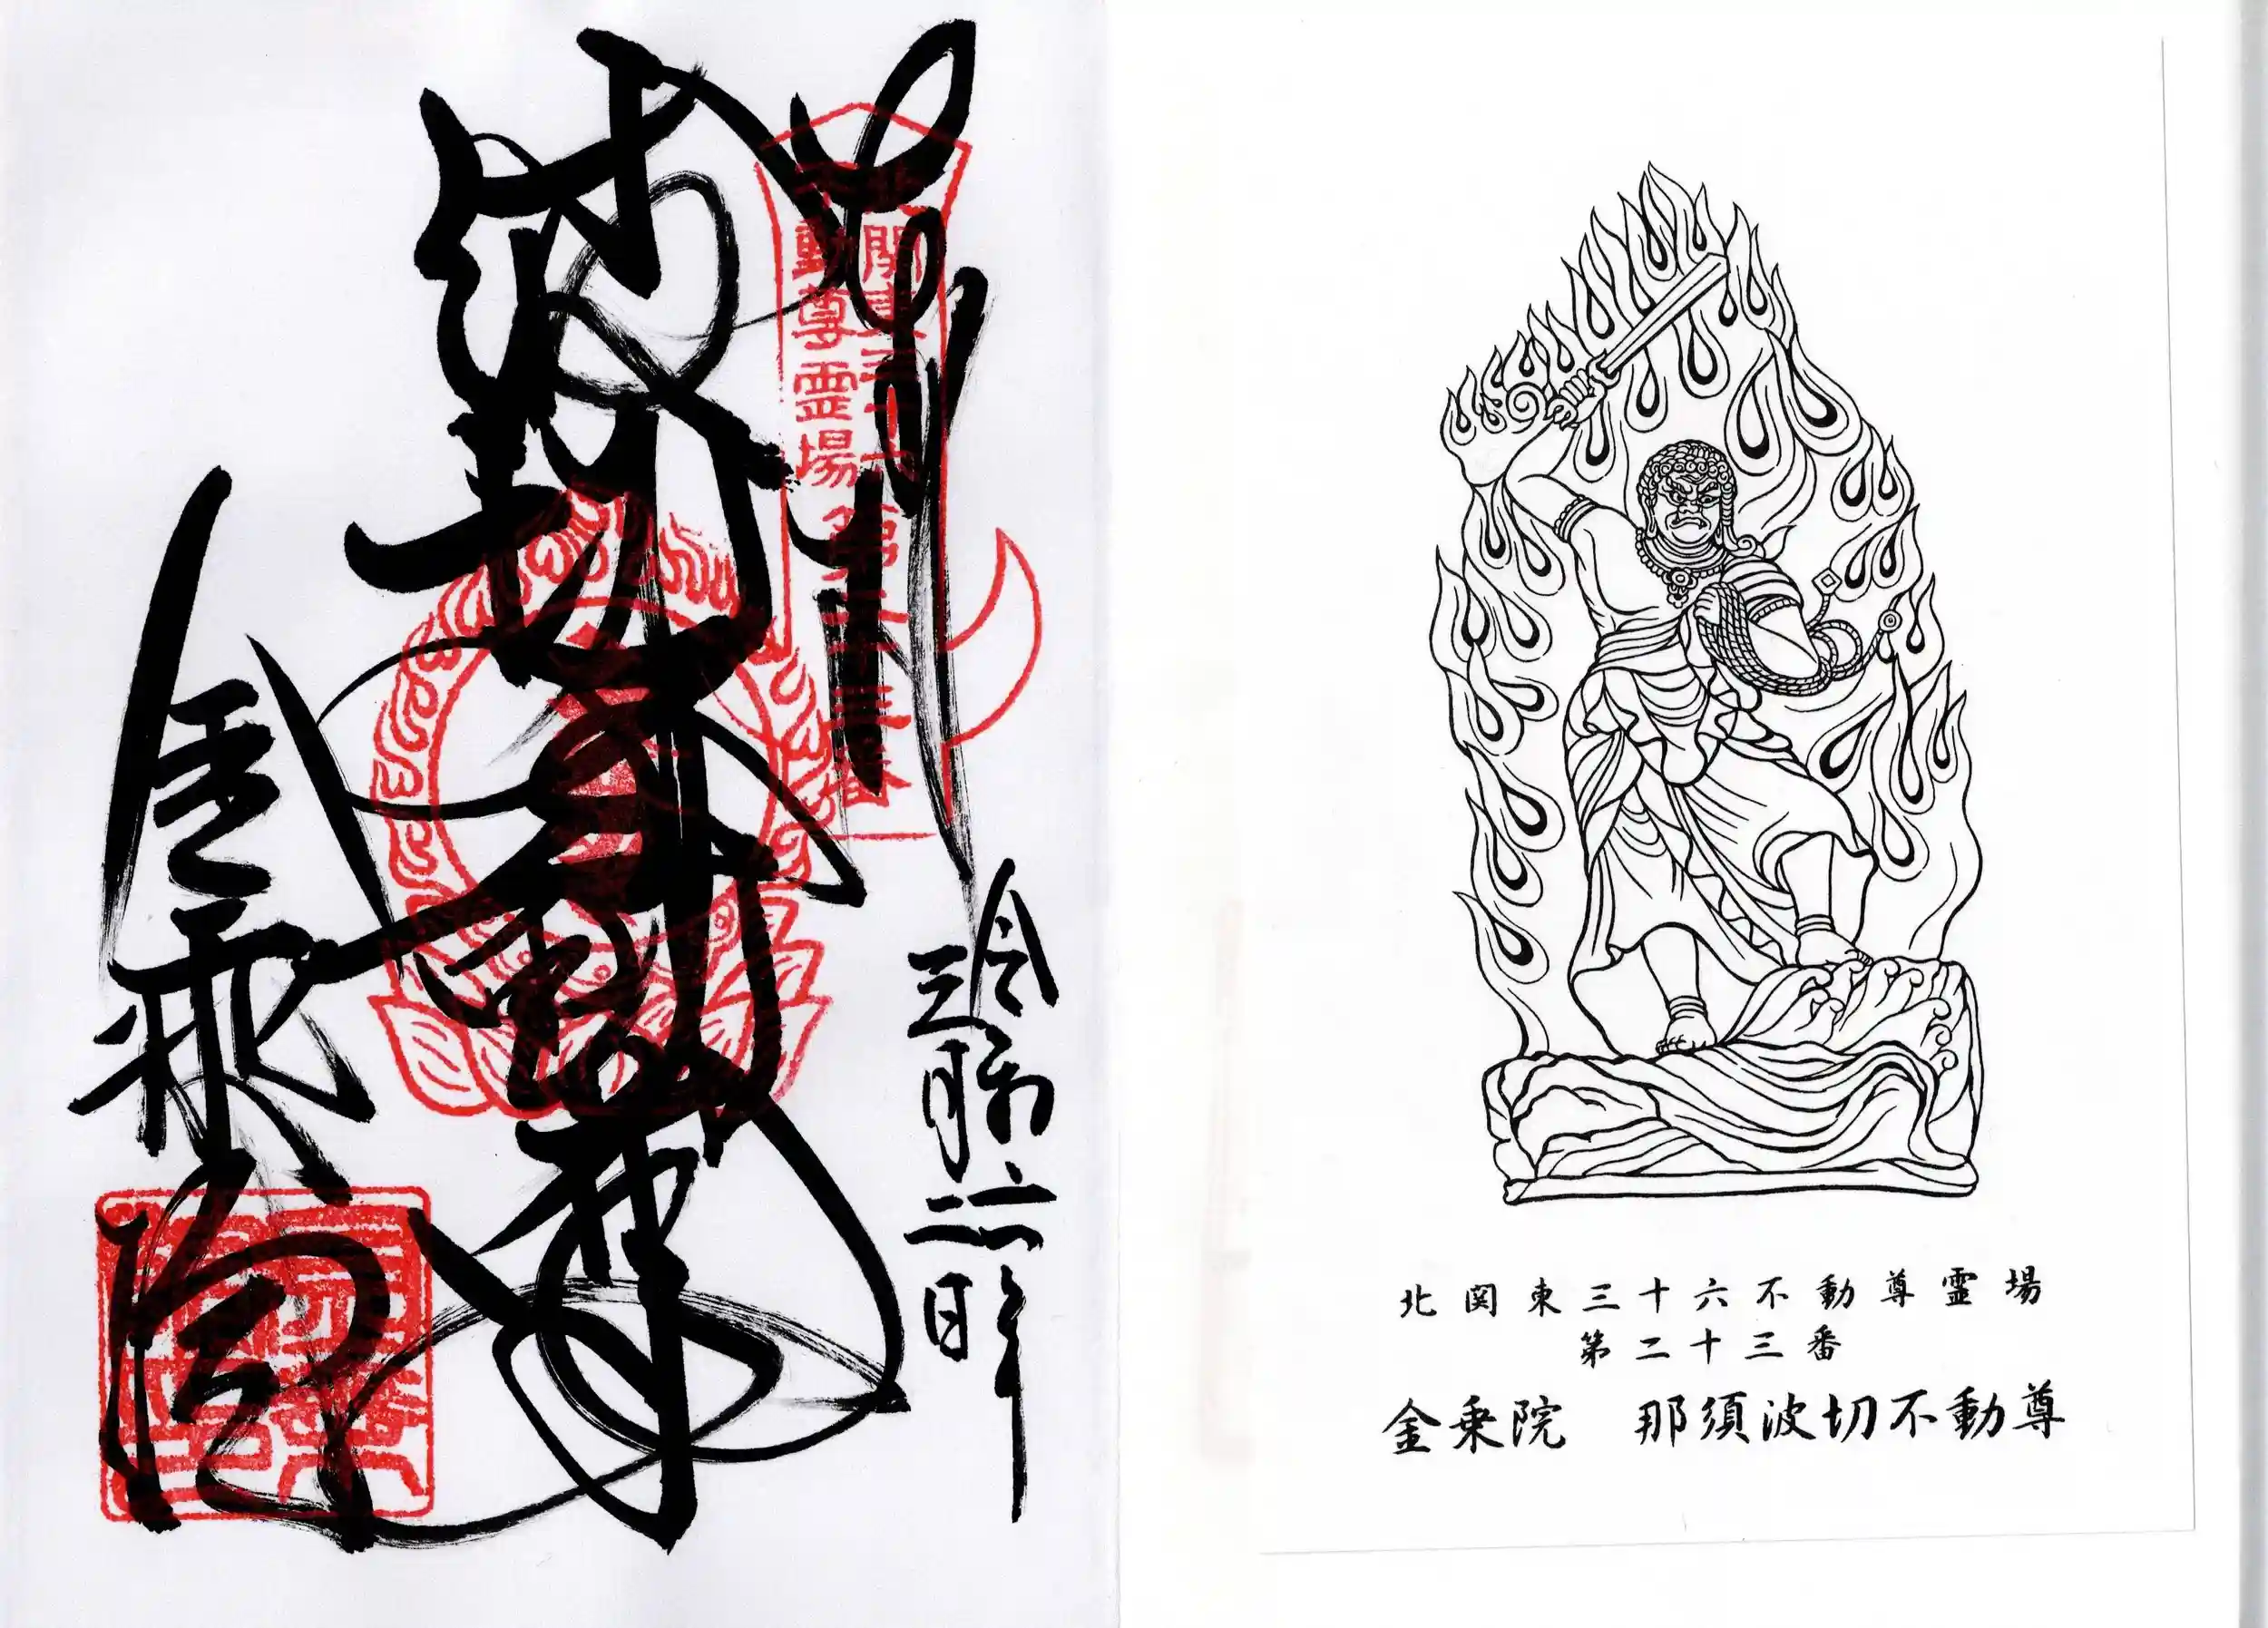 北関東三十六
不動尊霊場
第二十三番
令和六年
三月二日
波切不動尊
金乗院
北関東三十六不動尊霊場
第二十三番
金乗院 那須波切不動尊